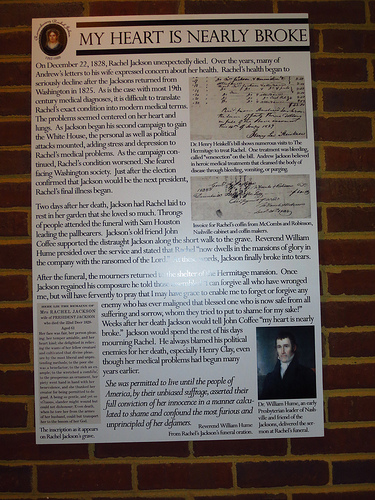 MY HEART IS NEARLY BROKE
On December 22, 1828, Rachel Jackson unexpectedly died. Over the years, many of
Andrew's letters to his wife expressed concern about her health. Rachel's health began to
seriously decline after the Jacksons returned from
Washington in 1825. As is the case with most 19th
century medical diagnoses, it is difficult to translate
Rachel's exact condition into modern medical terms.
The problems seemed centered on her heart and
lungs. As Jackson began his second campaign to gain
the White House, the personal as well as political
attacks mounted, adding stress and depression to
Rachel's medical problems. As the campaign con-
tinued, Rachel's condition worsened. She feared
facing Washington society. Just after the election
confirmed that Jackson would be the next president,
Rachel's final illness began.
Dr. Henry Heiskell's bill shows numerous visits to The
Hermitage to treat Rachel. One treatment was bleeding,
called "venesection" on the bill. Andrew Jackson believed
in heroic medical treatments that drained the body of
disease through bleeding, vomiting, or purging.
Two days after her death, Jackson had Rachel laid to
rest in her garden that she loved so much. Throngs
of people attended the funeral with Sam Houston
leading the pallbearers. Jackson's old friend John
Coffee supported the distraught Jackson along the short walk to the grave. Reverend William
Hume presided over the service and stated that Rachel "now dwells in the mansions of glory in
the company with the ransomed of the Lord." words, Jackson finally broke into tears.
Invoice for Rachel's coffin from McCombs and Robinson,
Nashville cabinet and coffin makers.
After the funeral, the mourners returned to the shelter of the Hermitage mansion. Once
Jackson regained his composure he told those I can forgive all who have wronged
me, but will have fervently to pray that I may have grace to enable me to forget or forgive any
enemy who has ever maligned that blessed one who is now safe from all
suffering and sorrow, whom they tried to put to shame for my sake!"
Weeks after her death Jackson would tell John Coffee "my heart is nearly
broke." Jackson would spend the rest of his days
mourning Rachel. He always blamed his political
enemies for her death, especially Henry Clay, even
though her medical problems had begun many
years earlier.
She was permitted to live until the people of
America, by their unbiased suffrage, asserted their
full conviction of her innocence in a manner calcu-
lated to shame and confound the most furious and
unprincipled of her defamers.
Reverend William Hume
From Rachel's Jackson's funeral oration.
Mrs RACHEL JACKSON
wife of PRESIDENT JACKSON
The inscription as it appears
on Rachel Jackson's grave.
Dr. William Hume, an early
Presbyterian leader of Nash-
ville and friend of the
Jacksons, delivered the ser-
mon at Rachel's funeral.